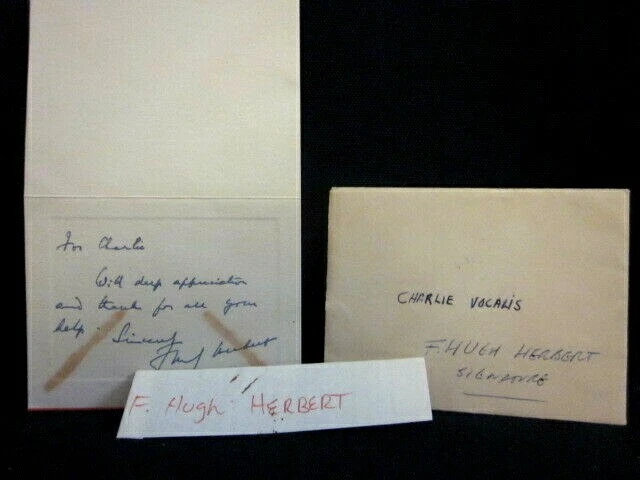 For Charlie
With deep appreciation
and thanks for all your
help. Sincerely
F. Hugh Herbert
F. Hugh HERBERT
CHARLIE VOCALIS
F. HUGH HERBERT
SIGNATURE